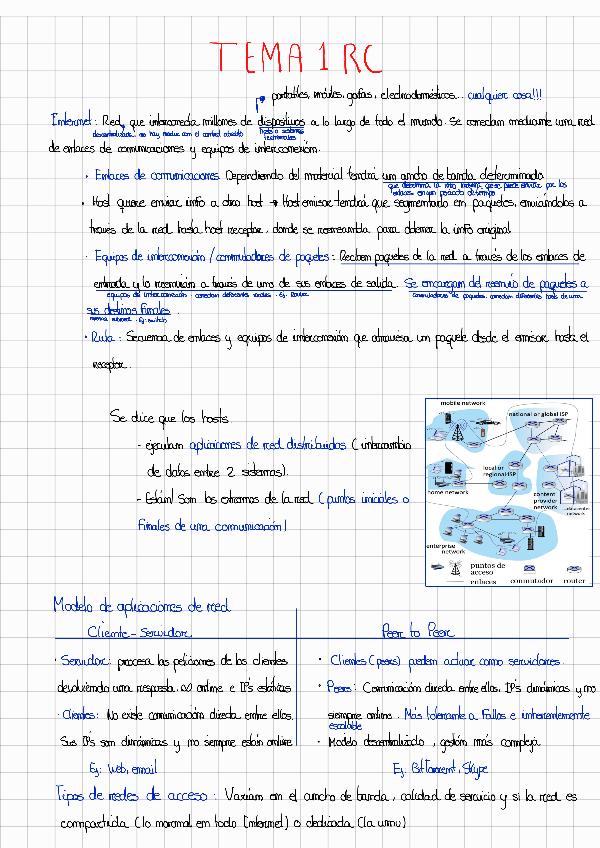 TEMA 1 RC
portátiles, móviles, gafas, electrodomésticos... cualquier cosa!!!
Internet: Red que interconecta millones de dispositivos a lo largo de todo el mundo. Se conectan mediante una red
descentralizada: no hay nadie con el control absoluto
hosts o sistemas terminales
de enlaces de comunicaciones y equipos de interconexión.
· Enlaces de comunicaciones. Dependiendo del material tendrá un ancho de banda determinado
que determina la info máxima que se puede enviar por los enlaces en un periodo de tiempo
· Host quiere enviar info a otro host → Host emisor tendrá que segmentarlo en paquetes, enviándolos a
través de la red hasta host receptor, donde se reensambla para obtener la info original
· Equipos de interconexión / conmutadores de paquetes: Reciben paquetes de la red a través de los enlaces de
entrada y lo reenvían a través de uno de sus enlaces de salida. Se encargan del reenvío de paquetes a
equipos de interconexión: conectan diferentes redes. Ej: Router
conmutadores de paquetes: conectan diferentes hosts de una
sus destinos finales.
misma subred. Ej: switch
· Ruta: Secuencia de enlaces y equipos de interconexión que atraviesa un paquete desde el emisor hasta el
receptor.
Se dice que los hosts
- ejecutan aplicaciones de red distribuidas (intercambio
de datos entre 2 sistemas).
- Están/Son los extremos de la red (puntos iniciales o
finales de una comunicación)
mobile network
national or global ISP
local or
regional ISP
home network
content
provider
network
datacenter
network
enterprise
network
puntos de
acceso
enlaces
conmutador
router
Modelo de aplicaciones de red
Cliente-Servidor
Peer to Peer
· Servidor: procesa las peticiones de los clientes
devolviendo una respuesta. ∞ online e IPs estáticas
· Clientes: No existe comunicación directa entre ellos.
Sus IPs son dinámicas y no siempre están online
Ej: Web, email
· Clientes (peers) pueden actuar como servidores.
· Peers: Comunicación directa entre ellos, IPs dinámicas y no
siempre online. Más tolerante a fallos e inherentemente
escalable
· Modelo descentralizado, gestión más compleja
Ej: BitTorrent, Skype
Tipos de redes de acceso: Varían en el ancho de banda, calidad de servicio y si la red es
compartida (lo normal en todo Internet) o dedicada (la umu)